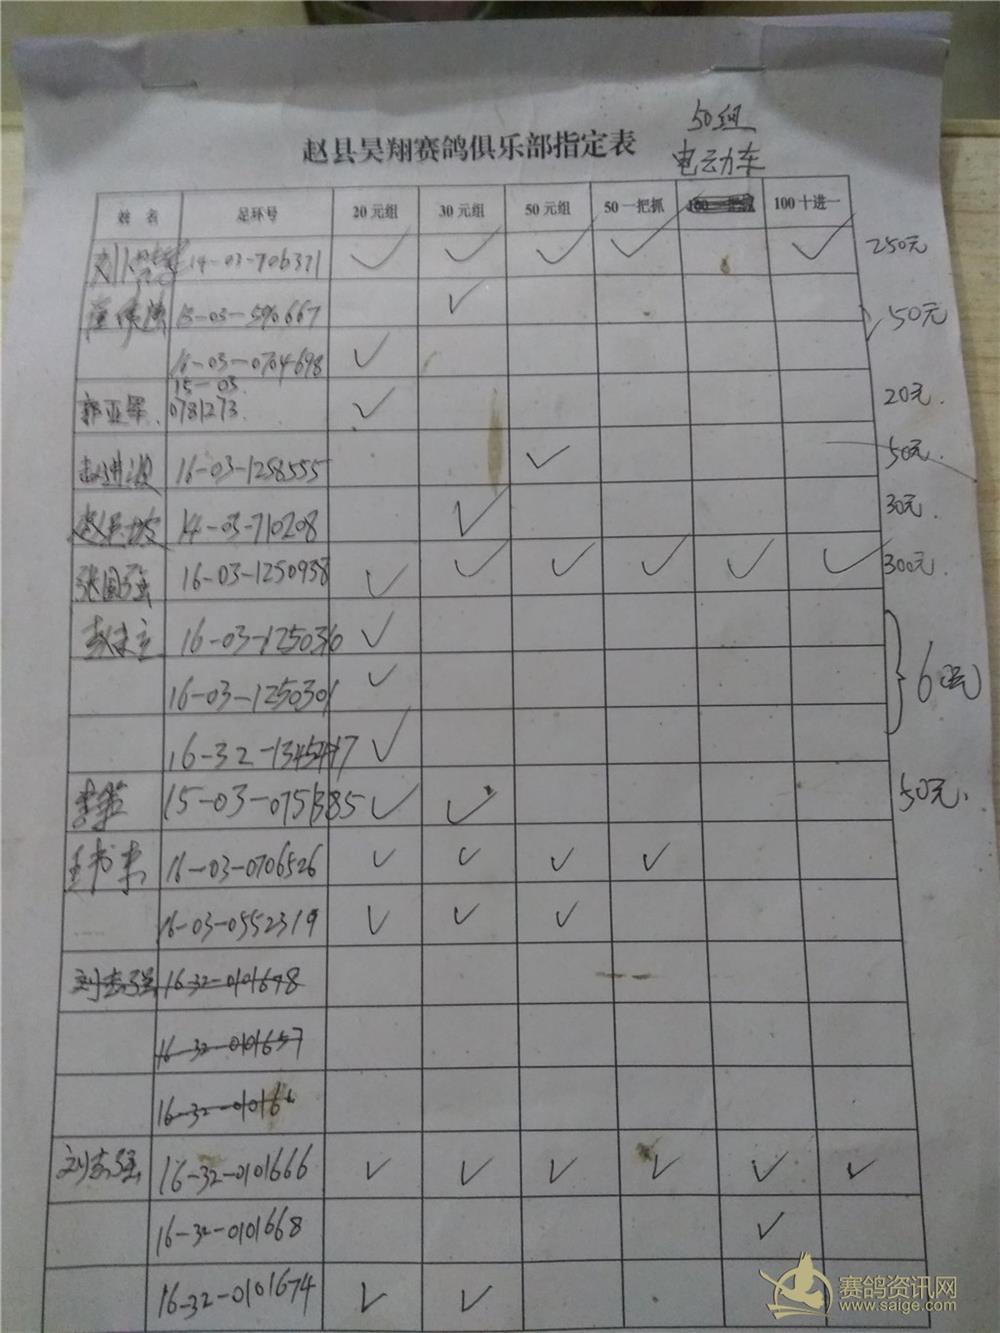 50组
赵县昊翔赛鸽俱乐部指定表
电动车
姓 名 足环号 20元组 30元组 50元组 50一把抓 100一把抓 100十进一
14-03-706371 ✓ ✓ ✓ ✓ ✓ 250元
15-03-590667 ✓ 50元
16-03-0704698 ✓
郭亚军. 15-03 0781273. ✓ 20元.
赵进波 16-03-1258555 ✓ 50元.
14-03-710208 ✓ 30元.
张国强 16-03-1250938 ✓ ✓ ✓ ✓ ✓ ✓ 300元.
16-03-1250316 ✓ 60元
16-03-1250301 ✓
16-32-1345417 ✓
15-03-0751385 ✓ ✓ 50元.
王书来 16-03-0706526 ✓ ✓ ✓ ✓
16-03-0552319 ✓ ✓ ✓
刘志强 16-32-0101648
16-32-0101657
16-32-010166
刘志强 16-32-0101666 ✓ ✓ ✓ ✓ ✓ ✓
16-32-0101668 ✓
16-32-0101674 ✓ ✓
赛鸽资讯网
www.saige.com